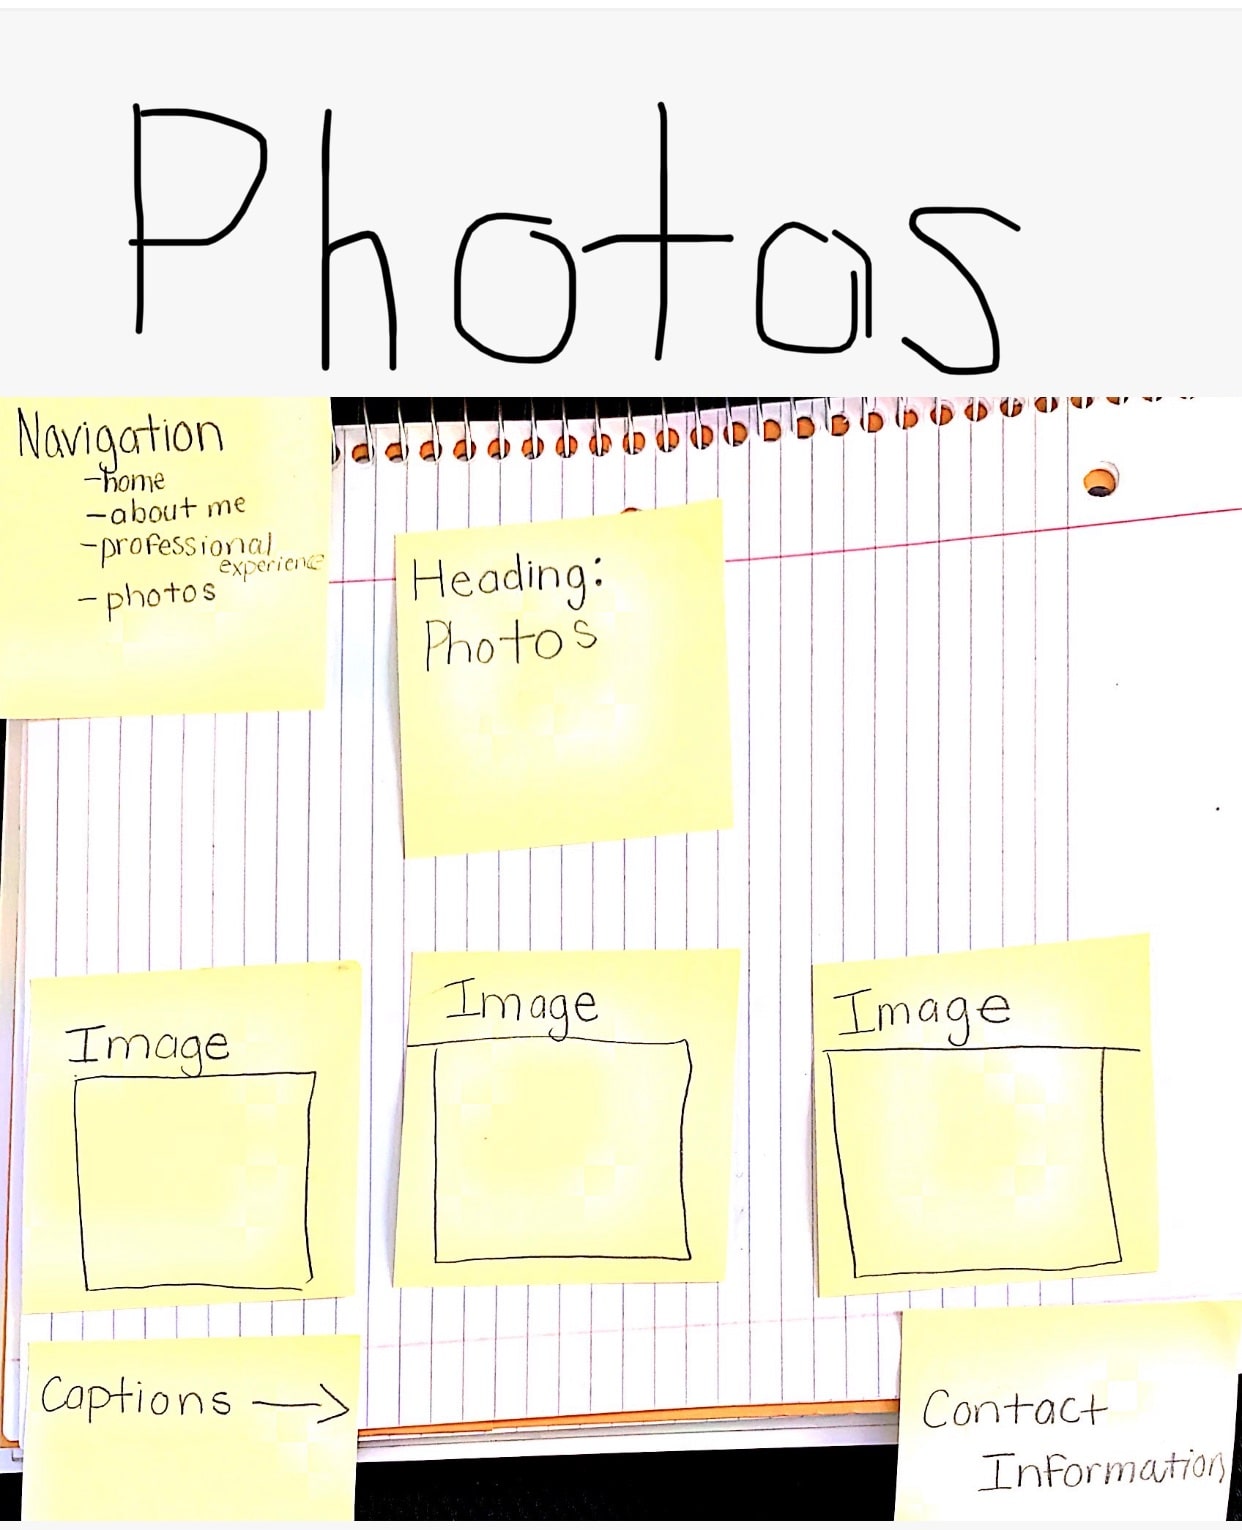 Photos
Navigation
-home
-about me
-professional
experience
-photos
Heading:
Photos
Image
Image
Image
Captions →
Contact
Information